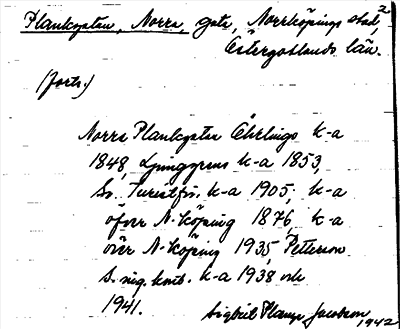 2
Plankgatan, Norra, gata, Norrköpings stad,
Östergötlands län.
(forts.)
Norra Plankgatan Öhrlings k-a
1848, Ljunggrens k-a 1853,
Sv. Turistför. k-a 1905, k-a
över N-köping 1876, k-a
över N-köping 1935, Petterson
k-a 1938 och
1941.
Sigbrit Plange Jacobson 1942